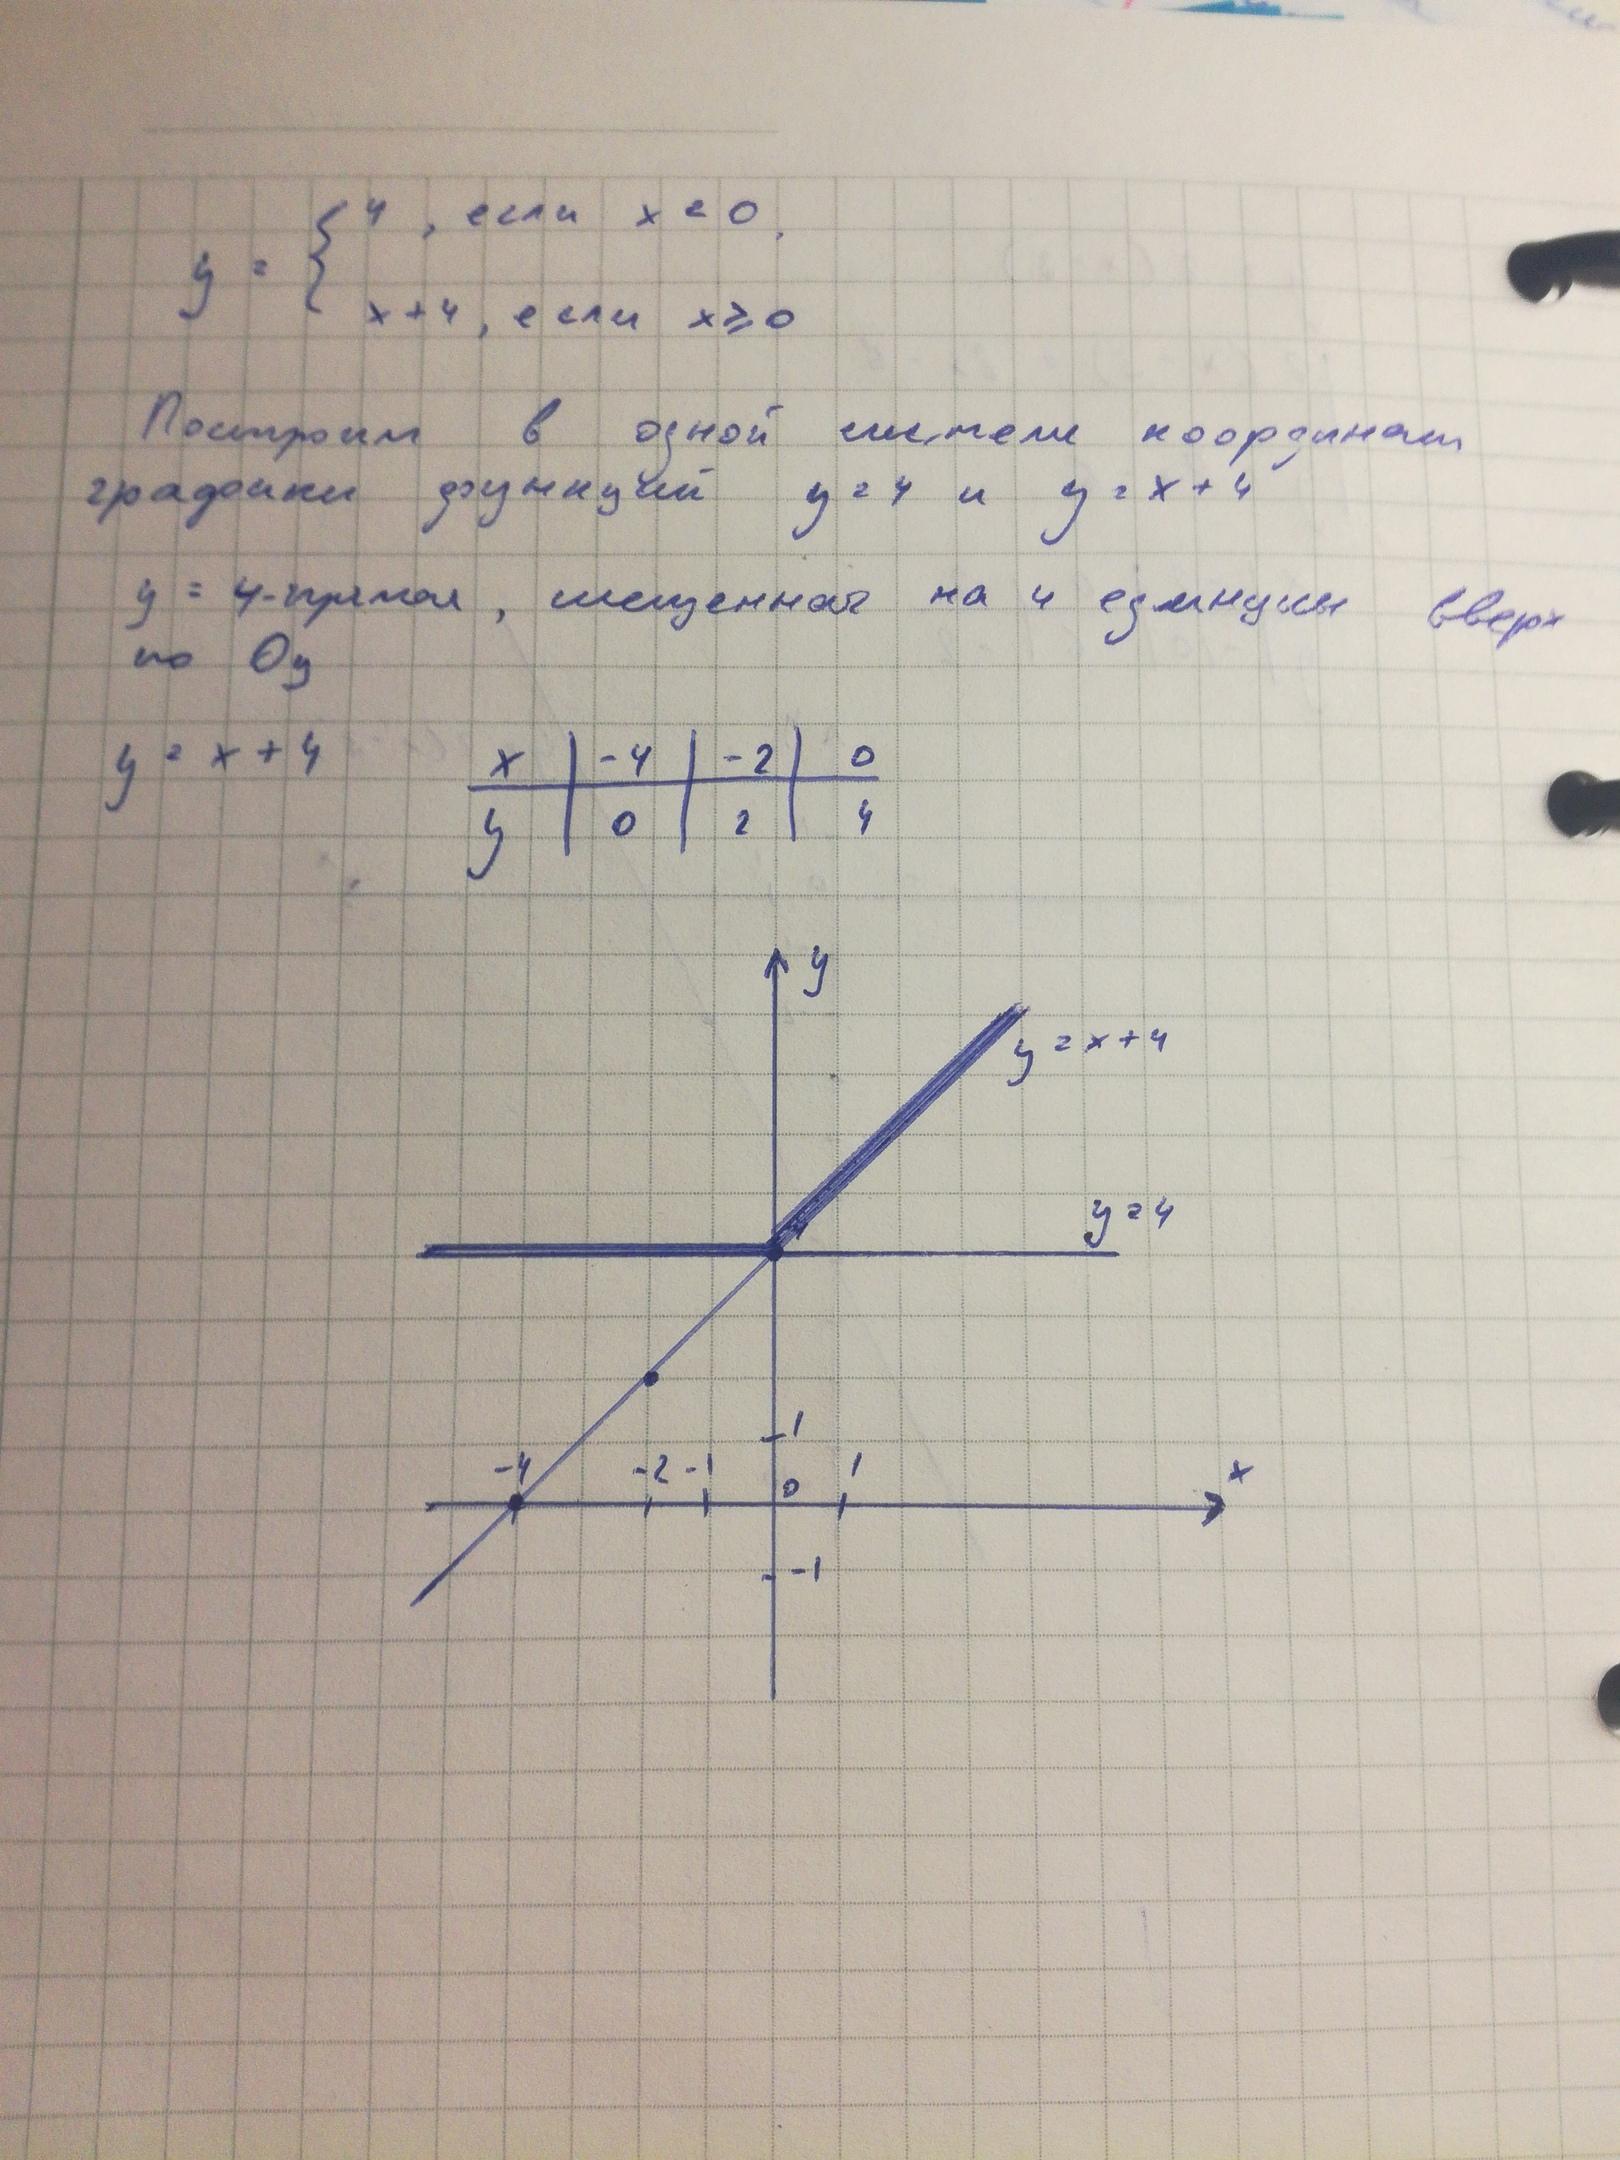 y = { 4, если x < 0,
x+4, если x ⩾ 0
Построим в одной системе координат
графики функций y = 4 и y = x + 4
y = 4 - прямая, смещенная на 4 единицы вверх
по Oy
y = x + 4
x | -4 | -2 | 0
y | 0 | 2 | 4
y
y = x + 4
y = 4
1
-4 -2 -1 0 1 x
-1